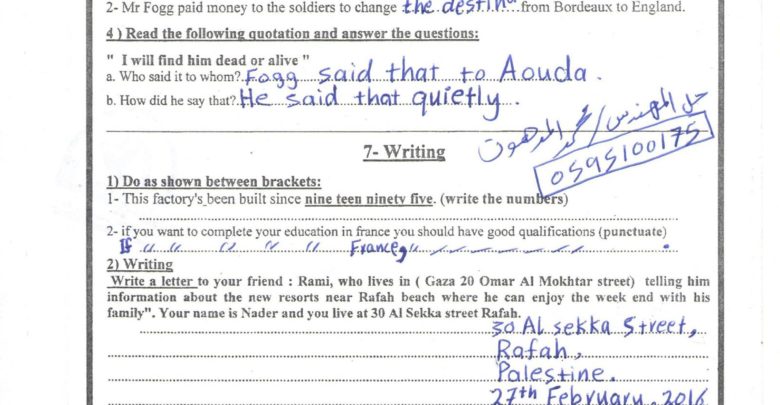 2- Mr Fogg paid money to the soldiers to change the destin from Bordeaux to England.
4 ) Read the following quotation and answer the questions:
" I will find him dead or alive "
a. Who said it to whom? Fogg said that to Aouda.
b. How did he say that? He said that quietly.
حل المهندس/
0595100175
7- Writing
1) Do as shown between brackets:
1- This factory's been built since nine teen ninety five. (write the numbers)
2- if you want to complete your education in france you should have good qualifications (punctuate)
If " " " " " France, " .
2) Writing
Write a letter to your friend : Rami, who lives in ( Gaza 20 Omar Al Mokhtar street) telling him
information about the new resorts near Rafah beach where he can enjoy the week end with his
family". Your name is Nader and you live at 30 Al Sekka street Rafah.
30 Al sekka Street,
Rafah,
Palestine.
27th February, 2016